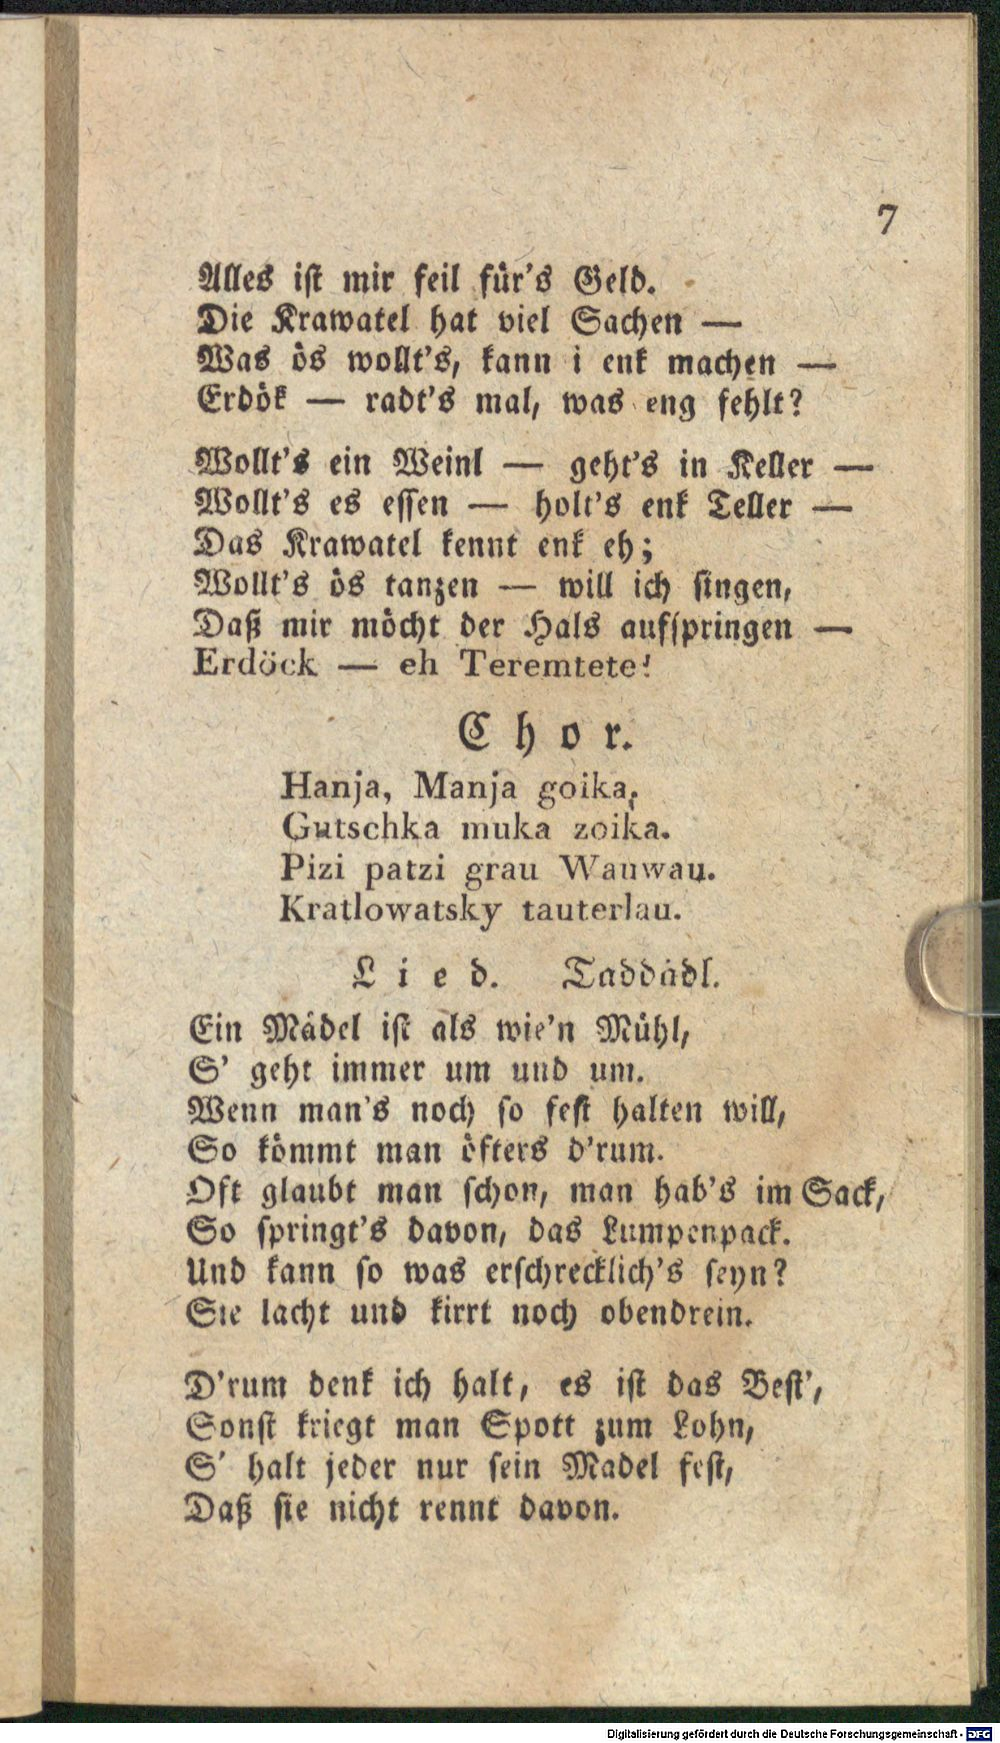 7
Alles ist mir feil für's Geld.
Die Krawatel hat viel Sachen —
Was ös wollt's, kann i enk machen —
Erdök — radt's mal, was eng fehlt?
Wollt's ein Weinl — geht's in Keller —
Wollt's es essen — holt's enk Teller —
Das Krawatel kennt enk eh;
Wollt's ös tanzen — will ich singen,
Daß mir möcht der Hals aufspringen —
Erdöck — eh Teremtete!
Chor.
Hanja, Manja goika,
Gutschka muka zoika.
Pizi patzi grau Wauwau.
Kratlowatsky tauterlau.
Lied. Taddädl.
Ein Mädel ist als wie'n Mühl,
S' geht immer um und um.
Wenn man's noch so fest halten will,
So kömmt man öfters d'rum.
Oft glaubt man schon, man hab's im Sack,
So springt's davon, das Lumpenpack.
Und kann so was erschrecklich's seyn?
Sie lacht und kirrt noch obendrein.
D'rum denk ich halt, es ist das Best',
Sonst kriegt man Spott zum Lohn,
S' halt jeder nur sein Madel fest,
Daß sie nicht rennt davon.
Digitalisierung gefördert durch die Deutsche Forschungsgemeinschaft - DFG